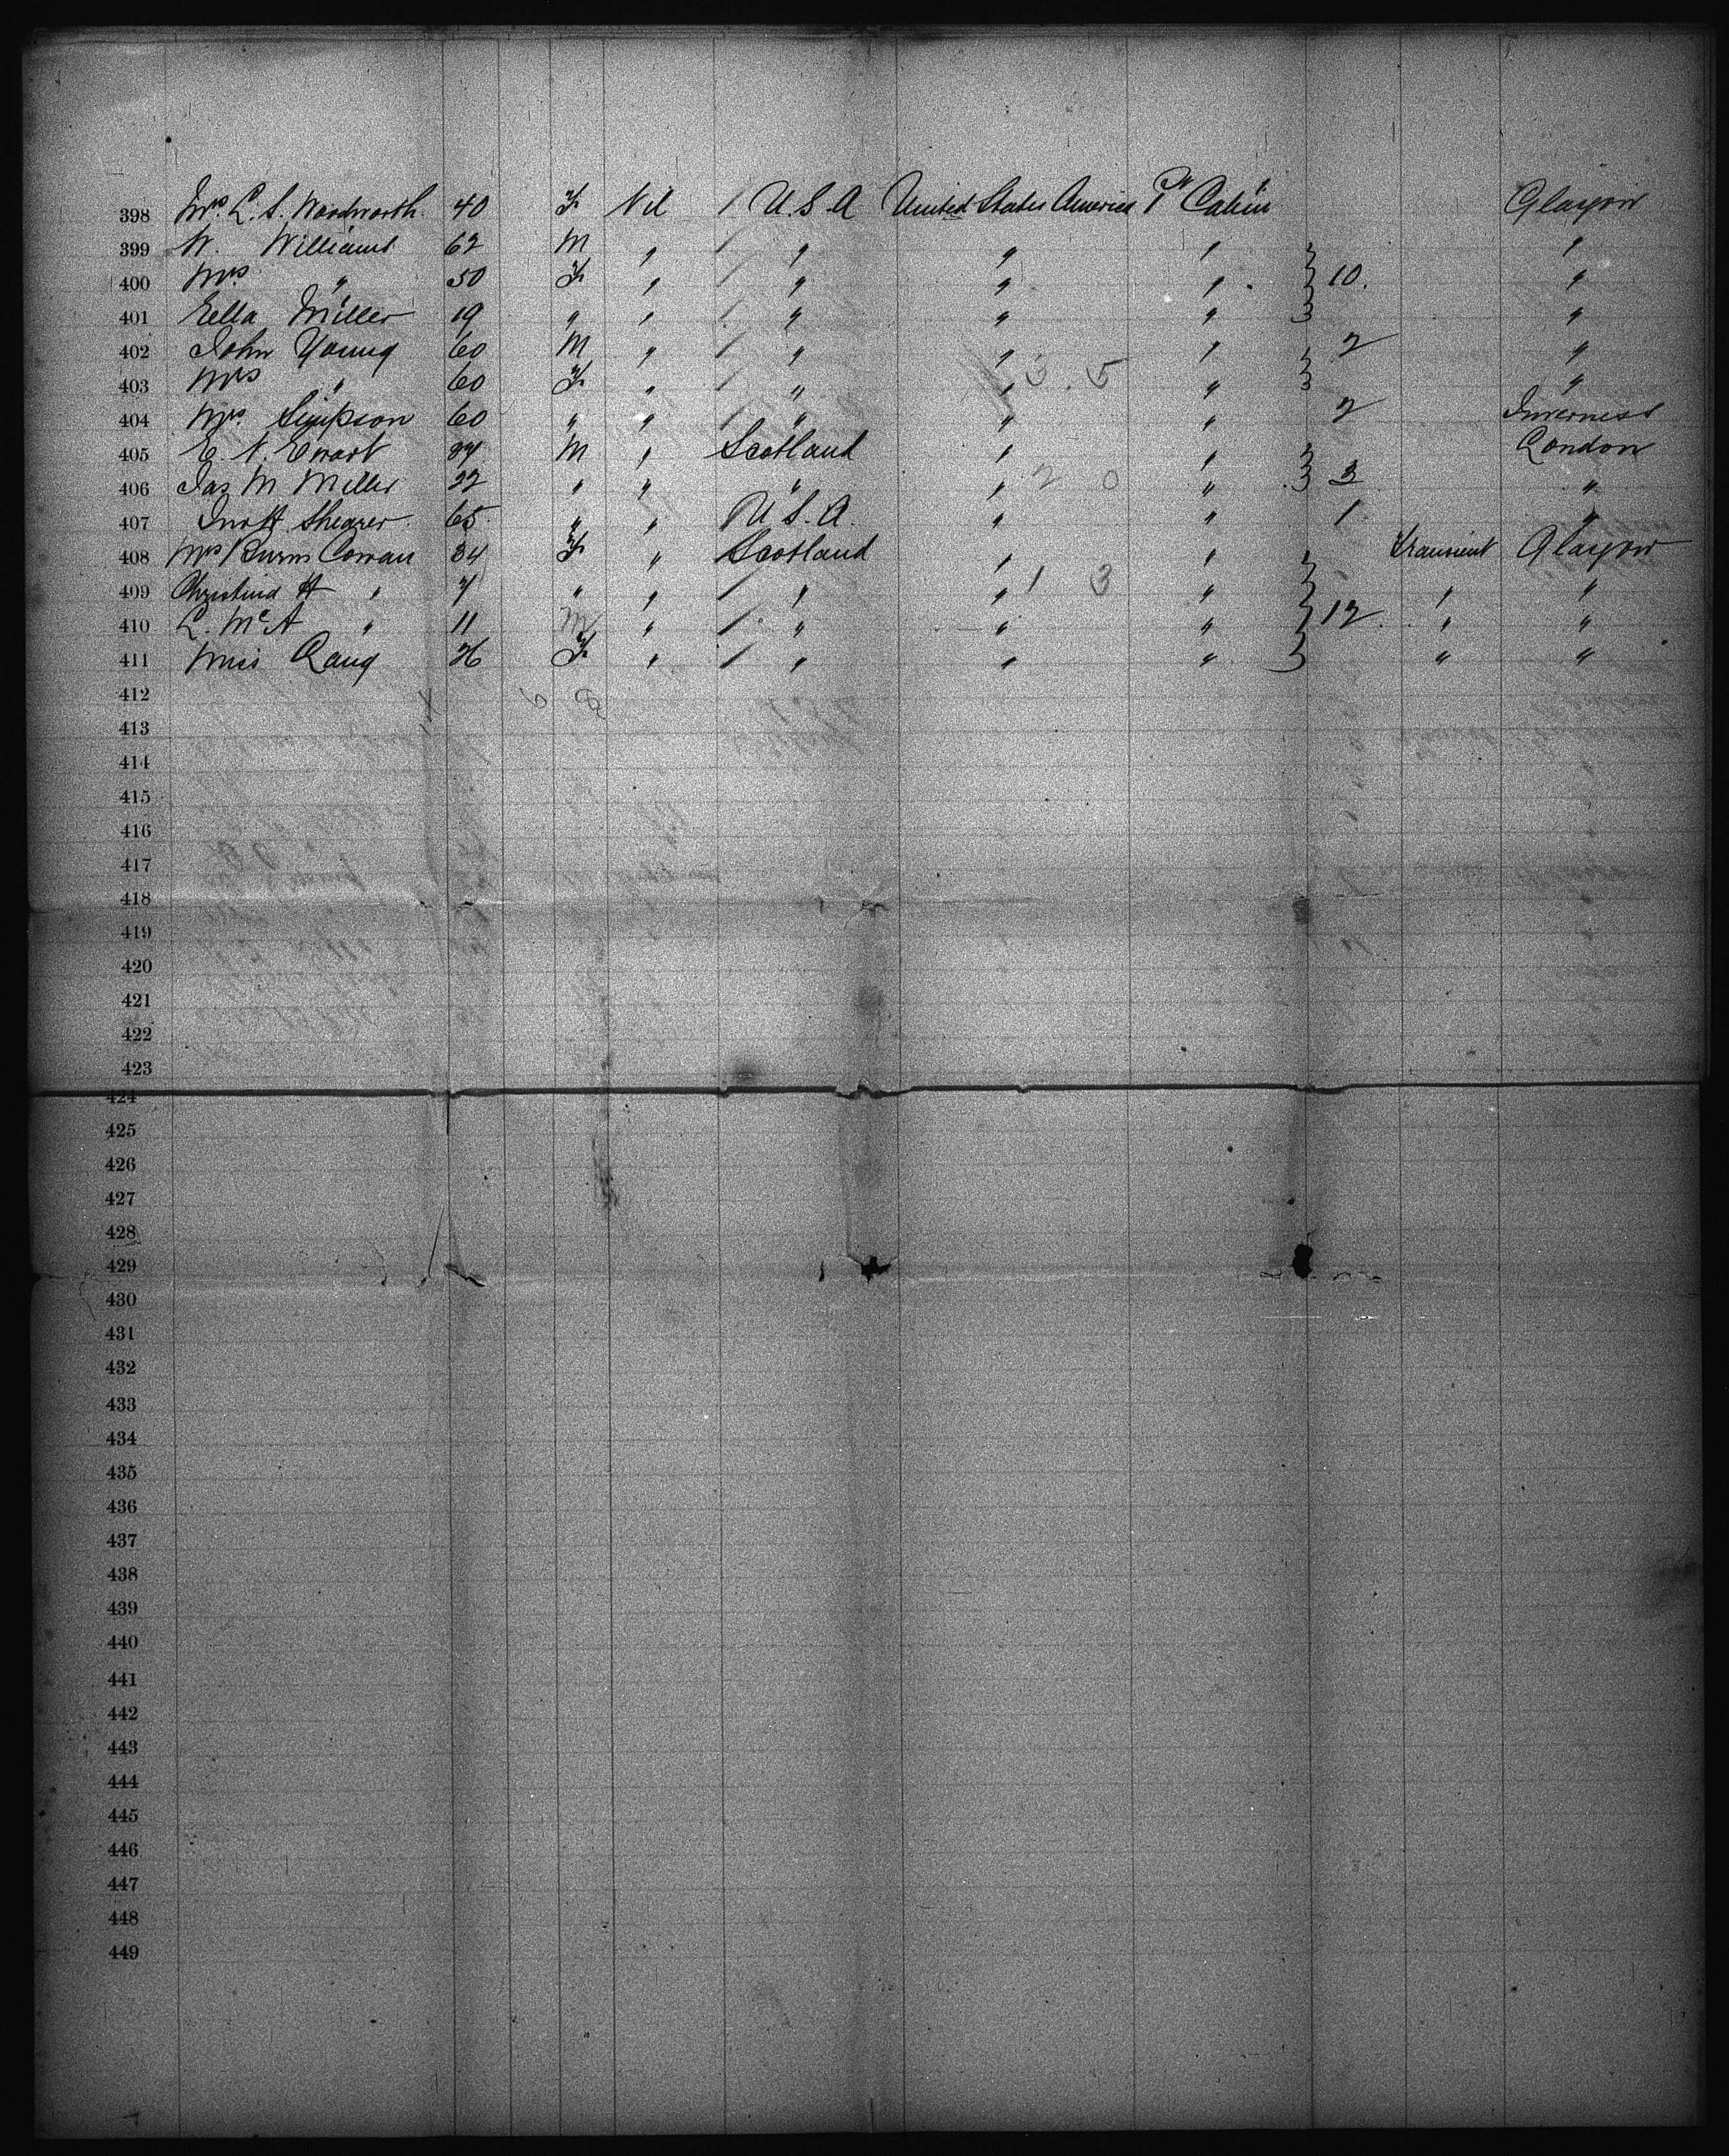 398 Mrs L. S. Woodworth 40 F Nil / U.S.A United States America Pr Cabin Glasgow
399 W. Williams 62 M " / " " " "
400 Mrs " 50 F " / " " " } 10. "
401 Ella Miller 19 " " / " " " "
402 John Young 60 M " / " " " 2 "
403 Mrs " 60 F " / " " 3 . 5 " } "
404 Mrs Simpson 60 " " / " " " 2 Inverness
405 E. N. Ewart M " Scotland " " London
406 Jas M Miller 22 " " " " 2 0 " } 3 "
407 Jno H Shearer 65 " " / U.S.A. " " 1 "
408 Mrs Burns Cowan 34 F " Scotland " " transient Glasgow
409 Christina H " 7 " " / " " 1 3 " " "
410 L. McA " 11 M " / " " " } 12. " "
411 Miss Lang 26 F " / " " " " "
412 6 8
413
414
415
416
417
418
419
420
421
422
423
424
425
426
427
428
429
430
431
432
433
434
435
436
437
438
439
440
441
442
443
444
445
446
447
448
449